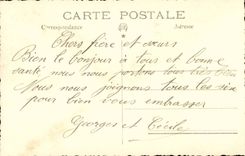 CARTE POSTALE
Correspondance Adresse
Chers frère et sœurs
Bien le bonjour à tous et bonne
santé nous nous portons tous très bien
Nous nous joignons tous les six
pour bien vous embrasser
Georges et Cécile